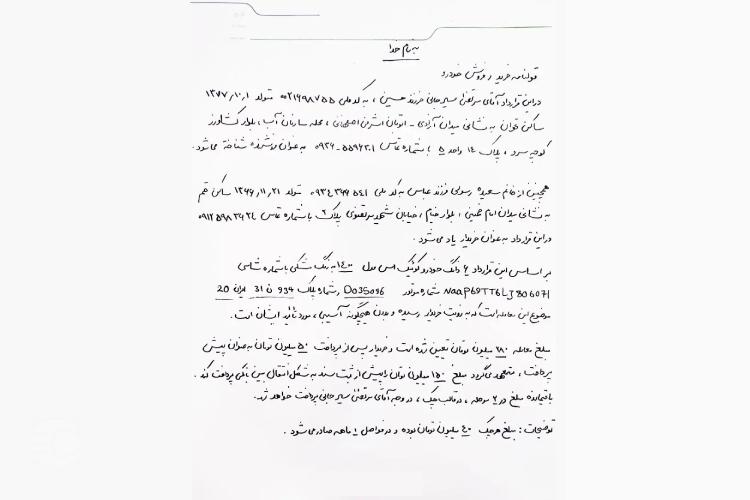 به نام خدا
قولنامه خرید و فروش خودرو
در این قرارداد آقای مرتضی میرجانی فرزند حسین ، به کد ملی ۰۰۲۱۶۹۸۷۵۵ متولد ۱۳۷۷/۱۰/۱
ساکن تهران به نشانی میدان آزادی - اتوبان اشرفی اصفهانی ، محله سازمان آب ، بلوار کشاورز
کوچه سرد ، پلاک ۱۴ واحد ۵ با شماره تماس به عنوان فروشنده شناخته می‌شود .
همچنین از خانم سعیده رسولی فرزند عباس به کد ملی متولد ۱۳۶۶/۱۱/۲۱ ساکن قم
به نشانی میدان امام خمینی ، بلوار خیام ، خیابان شهید مرتضوی پلاک ۶ با شماره تماس
در این قرارداد به عنوان خریدار یاد می‌شود .
بر اساس این قرارداد ۶ دانگ خودرو کوئیک اس مدل ۱۴۰۰ به رنگ مشکی با شماره شاسی
شماره موتور D035096 و شماره پلاک 934 ن 31 ایران 20
موضوع این معامله است که به رویت خریدار رسیده و بدون هیچگونه آسیبی ، مورد تائید ایشان است .
مبلغ معامله ۲۸۰ میلیون تومان تعیین شده است و خریدار پس از پرداخت ۵۰ میلیون تومان به عنوان پیش
پرداخت ، متعهد می‌گردد مبلغ ۱۵۰ میلیون تومان را پیش از ثبت سند به شکل انتقال بین بانکی پرداخت کند .
باقیمانده مبلغ در ۲ مرحله ، در قالب چک ، در وجه آقای مرتضی میرجانی پرداخت خواهد شد .
توضیحات : مبلغ هر چک ۴۰ میلیون تومان بوده و در فواصل ماهه صادر می‌شود .